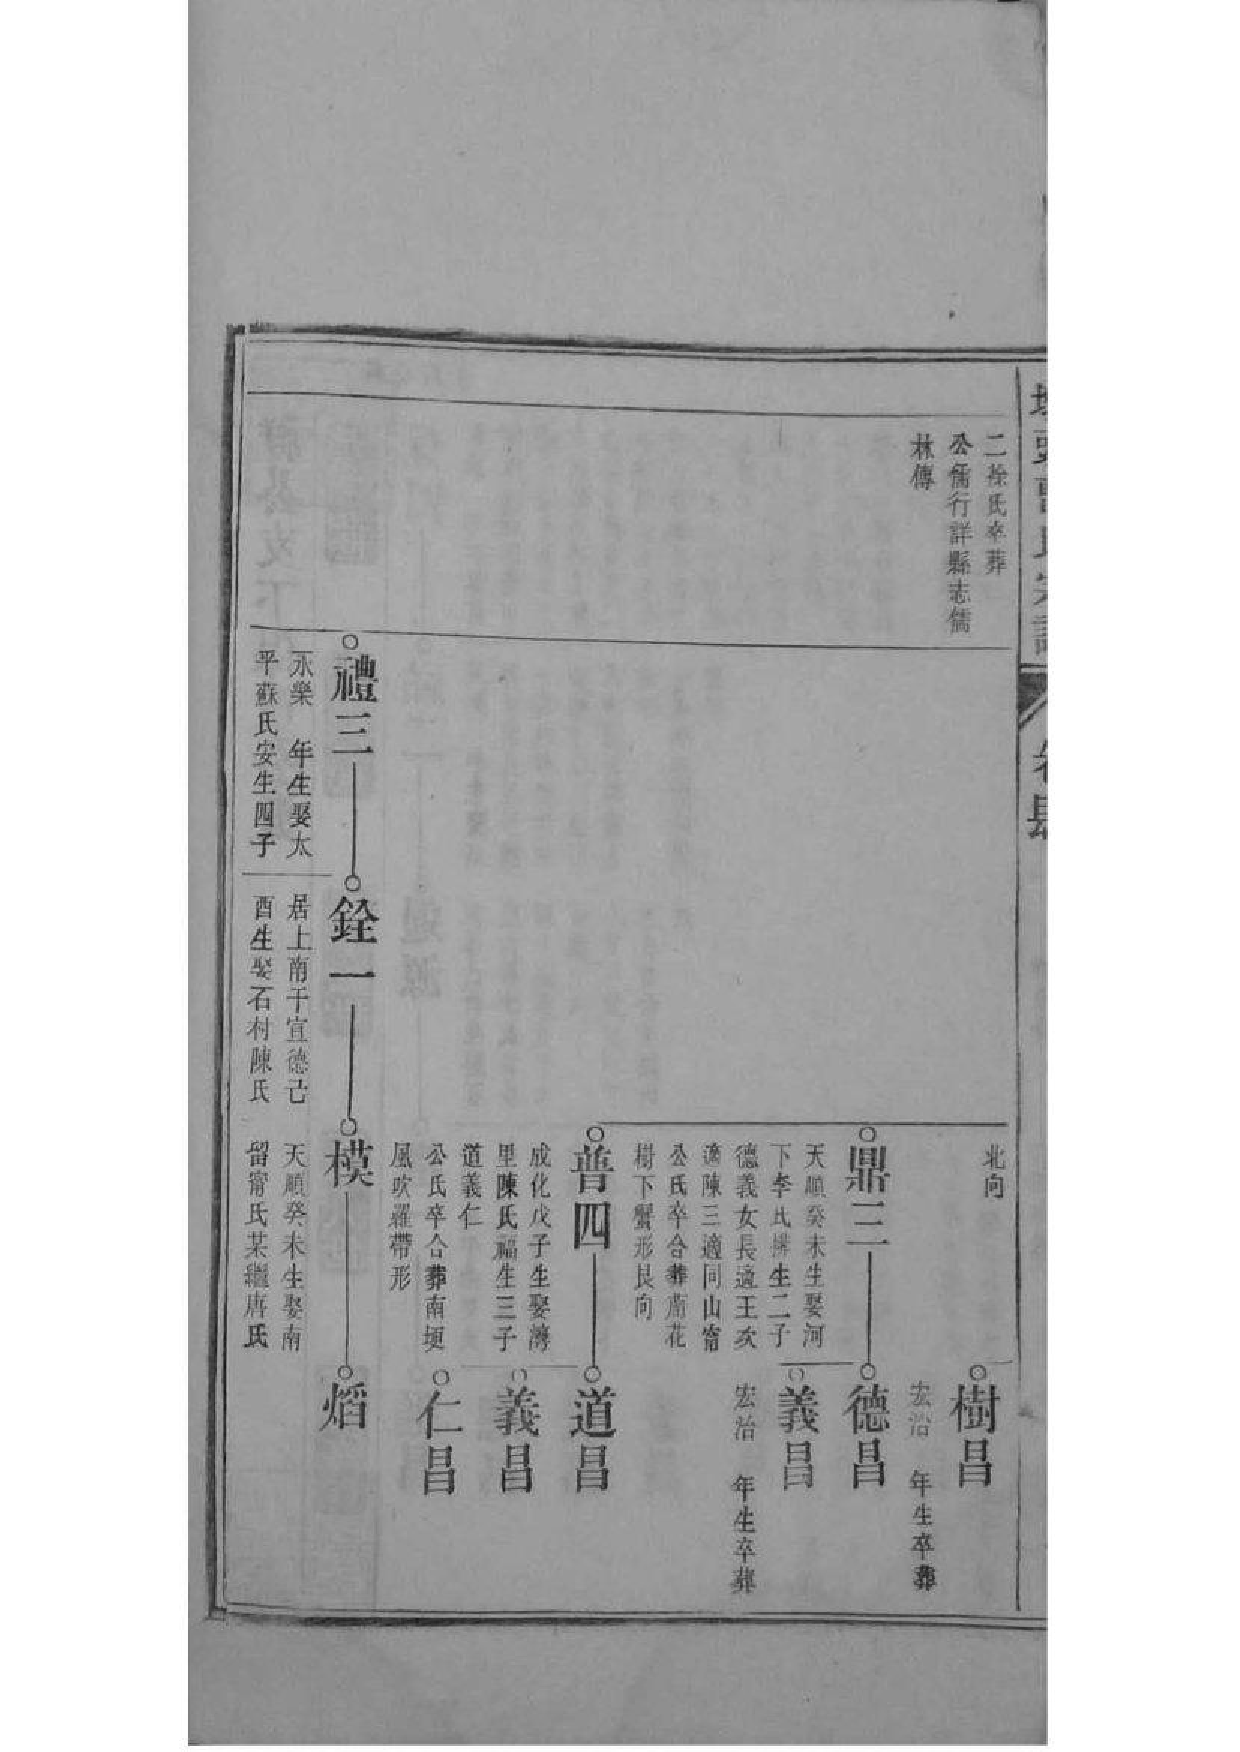 曹氏宗譜
二徐氏卒葬
公儒行詳縣志儒
林傳
北向
樹昌
宏治 年生卒葬
鼎三
天順癸未生娶河
下李氏 生二子
德義女長適王次
適陳三適同山甯
公氏卒合葬南花
樹下蟹形艮向
德昌
義昌
宏治 年生卒葬
普四
成化戊子生娶灣
里陳氏福生三子
道義仁
公氏卒合葬南埂
風吹羅帶形
道昌
義昌
仁昌
禮三
永樂 年生娶太
平蘇氏安生四子
銓一
居上南干宣德己
酉生娶石村陳氏
模
天順癸未生娶南
留甯氏某繼唐氏
熖